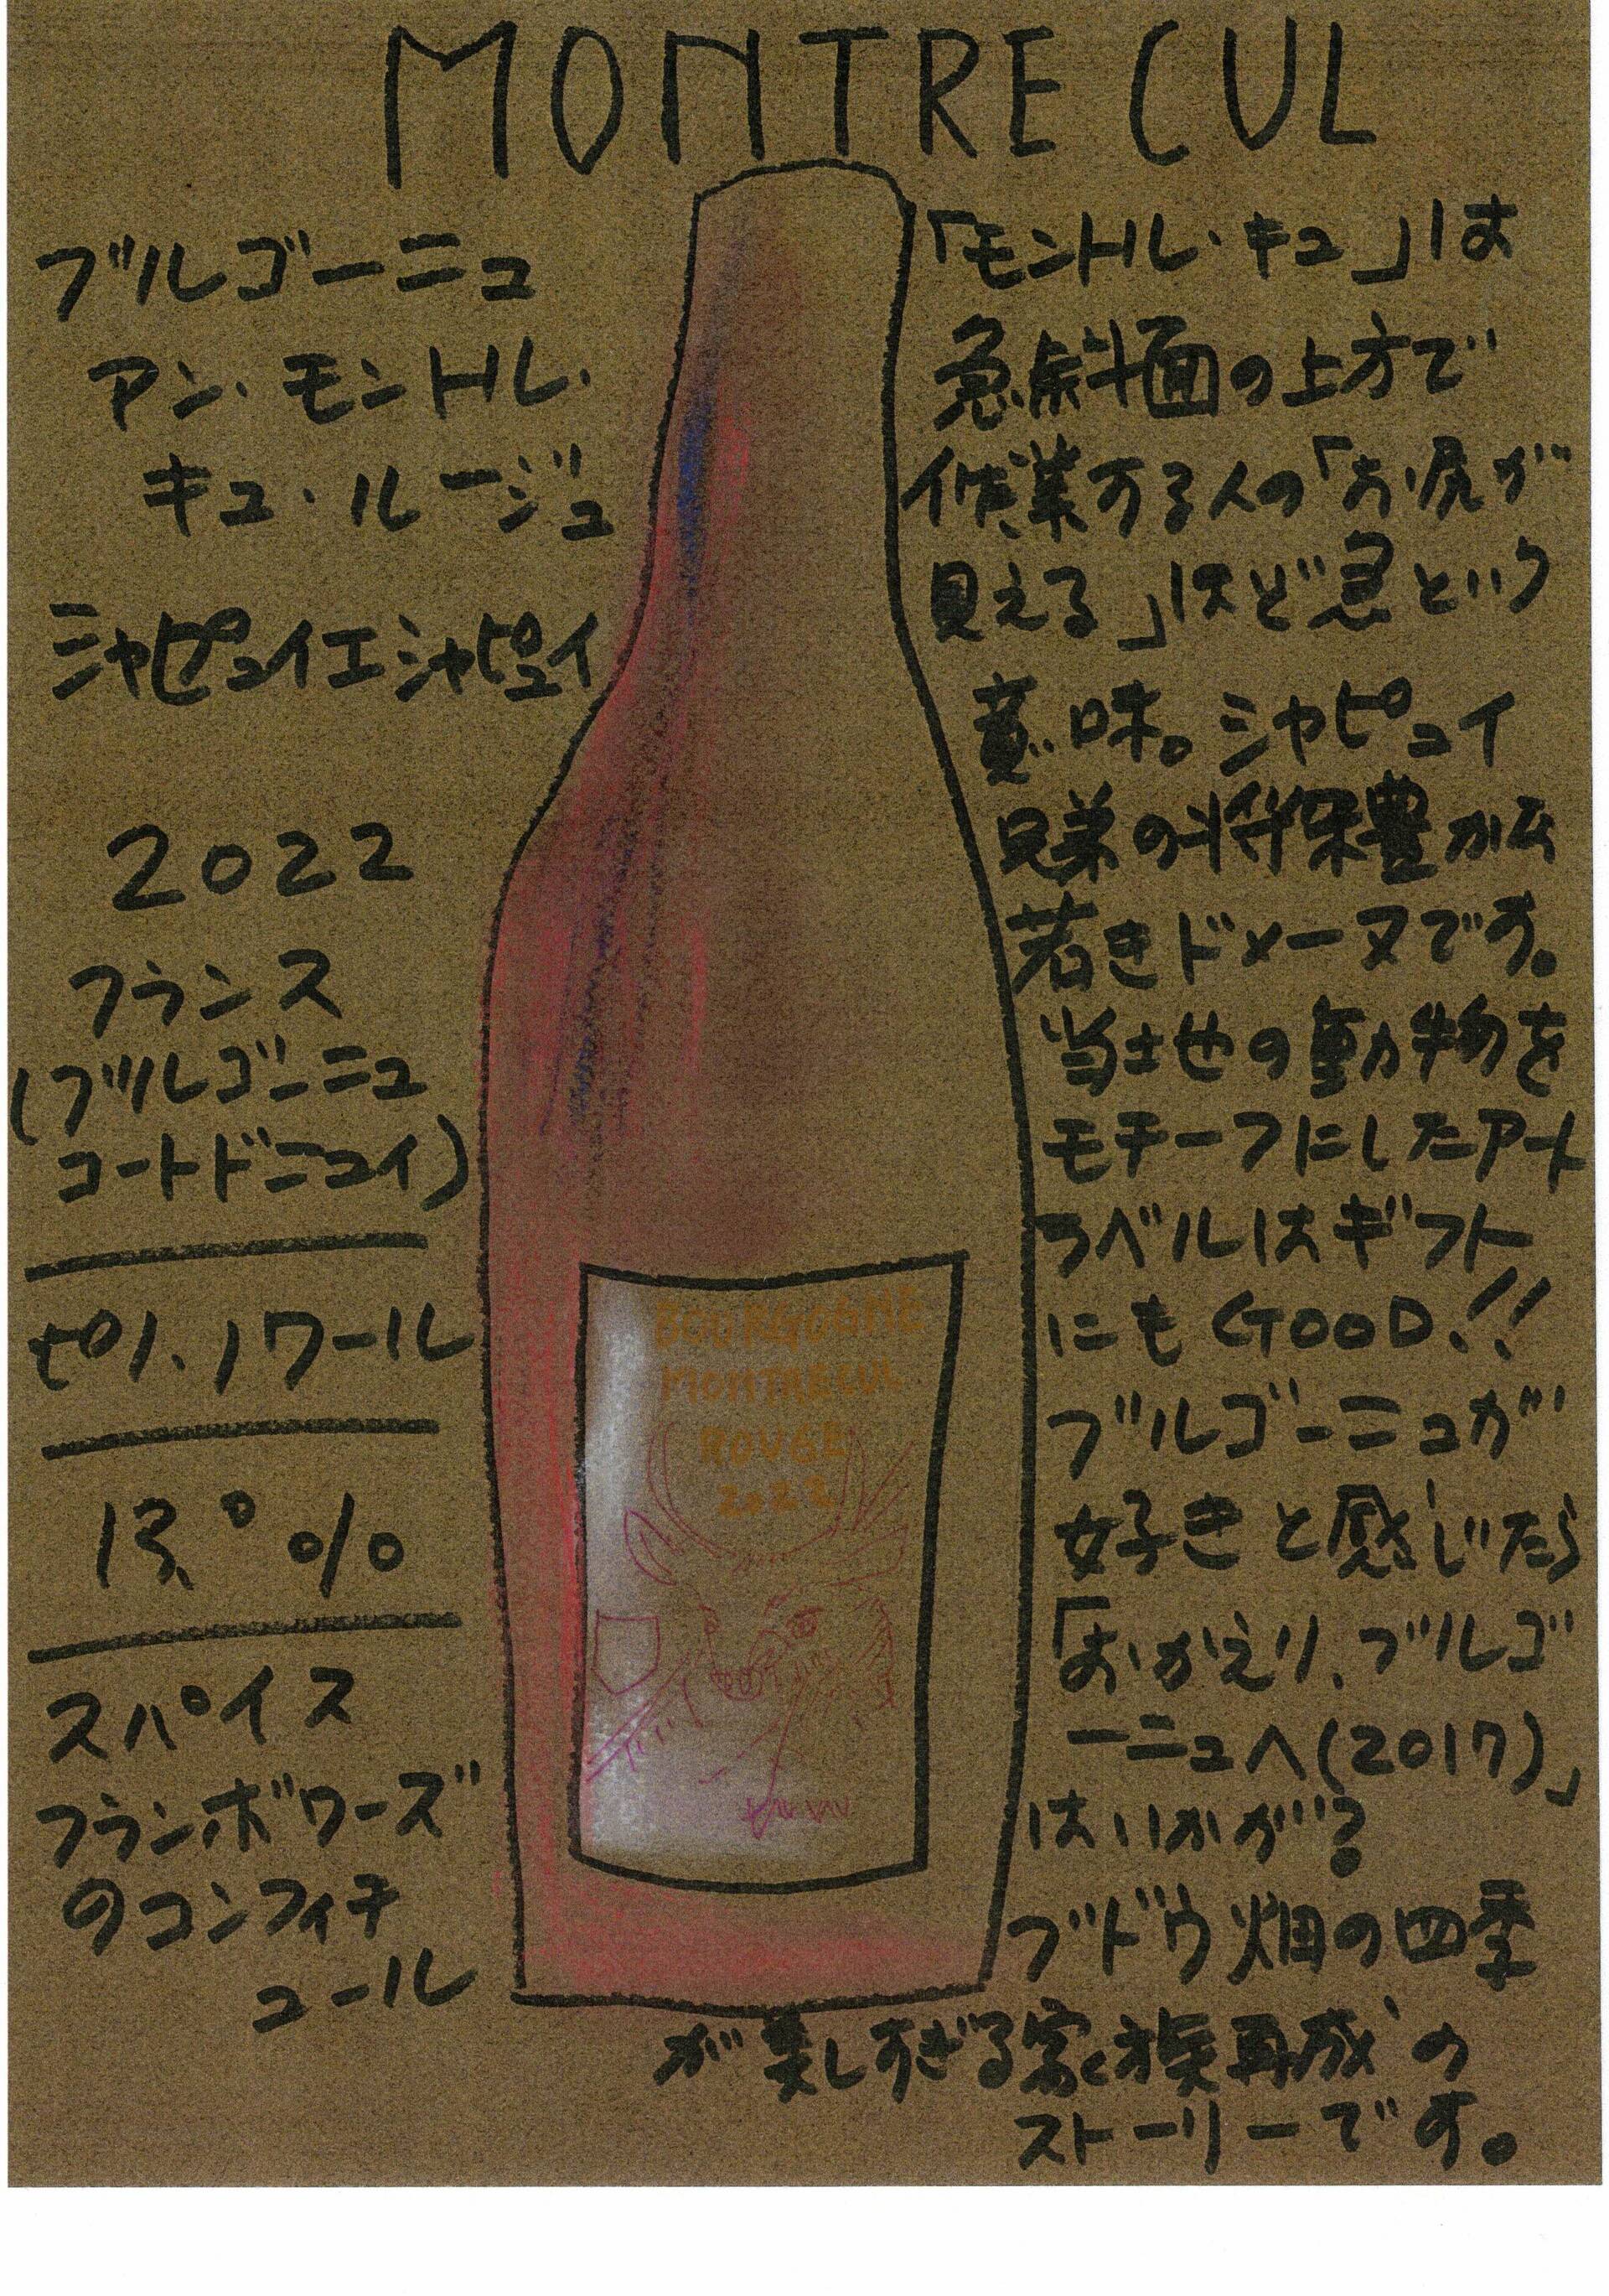 MONTRE CUL
ブルゴーニュ
アン・モントル・
キュ・ルージュ
シャピュイエシャピュイ
2022
フランス
(ブルゴーニュ
コートドニュイ)
ピノ、ノワール
13.0%
スパイス
フランボワーズ
のコンフィチ
ュール
「モントル・キュ」は
急斜面の上方で
作業する人の「お尻が
見える」ほど急という
意味。シャピュイ
兄弟の
若きドメーヌです。
当地の動物を
モチーフにしたアート
ラベルはギフト
にもGOOD!!
ブルゴーニュが
好きと感じたら
「おかえり、ブルゴ
ーニュへ(2017)」
はいかが?
ブドウ畑の四季
が美しすぎる家族再成の
ストーリーです。
BOURGOGNE
MONTRECUL
ROUGE
2022